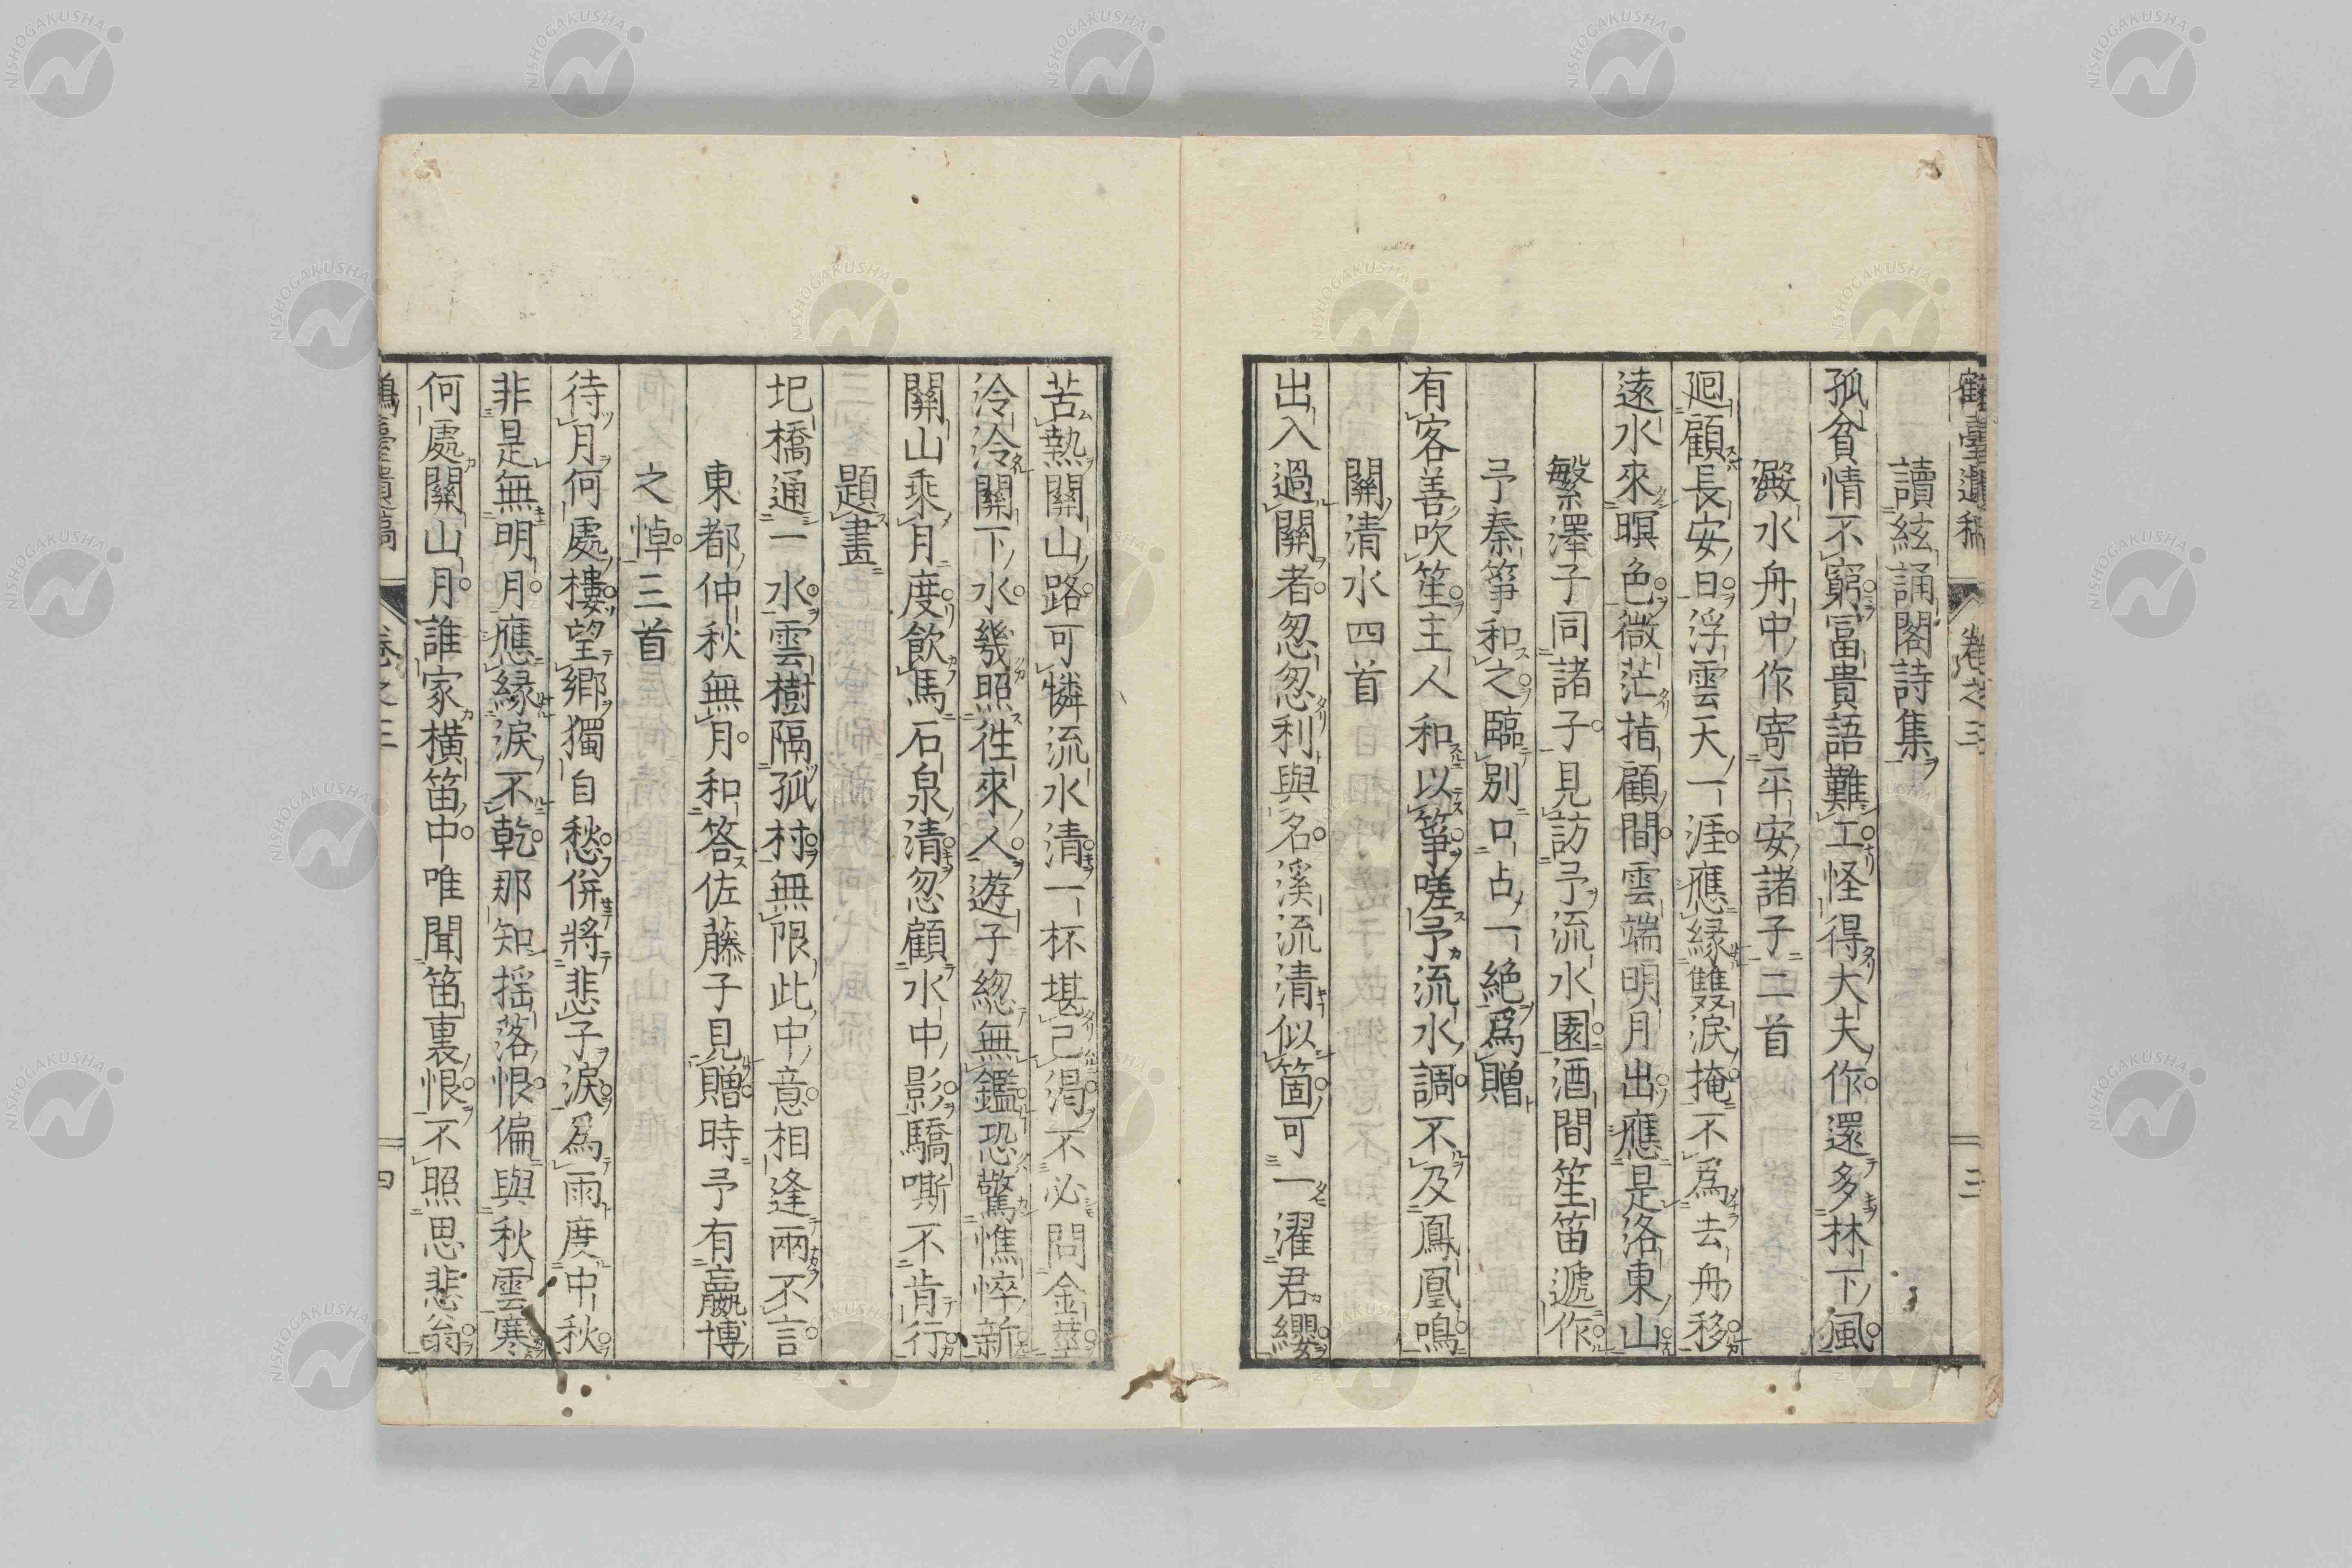 鶴臺遺稿 卷之三 三
讀絃誦閣詩集
孤貧情不窮冨貴語難工怪得大夫作還多林下風
澱水舟中作寄平安諸子二首
廻顧長安日浮雲天一涯應縁雙淚掩不爲去舟移
遠水來暝色微茫指顧間雲端明月出應是洛東山
繁澤子同諸子見訪予流水園酒間笙笛遞作
予秦箏和之臨別口占一絶爲贈
有客善吹笙主人和以箏嗟予流水調不及鳳凰鳴
關清水四首
出入過關者忽忽利與名溪流清似箇可一濯君纓
苦熱關山路可憐流水清一杯堪已渇不必問金莖
泠泠關下水幾照徃來人遊子緫無鑑恐驚憔悴新
關山乘月度飲馬石泉清忽顧水中影驕嘶不肯行
題畫
圯橋通一水雲樹隔孤村無限此中意相逢兩不言
東都仲秋無月和答佐藤子見贈時予有嬴博
之悼三首
待月何處樓望郷獨自愁併將悲子淚爲雨度中秋
非是無明月應縁淚不乾那知揺落恨偏與秋雲寒
何處關山月誰家橫笛中唯聞笛裏恨不照思悲翁
鶴臺遺稿 卷之三 四
NISHOGAKUSHA